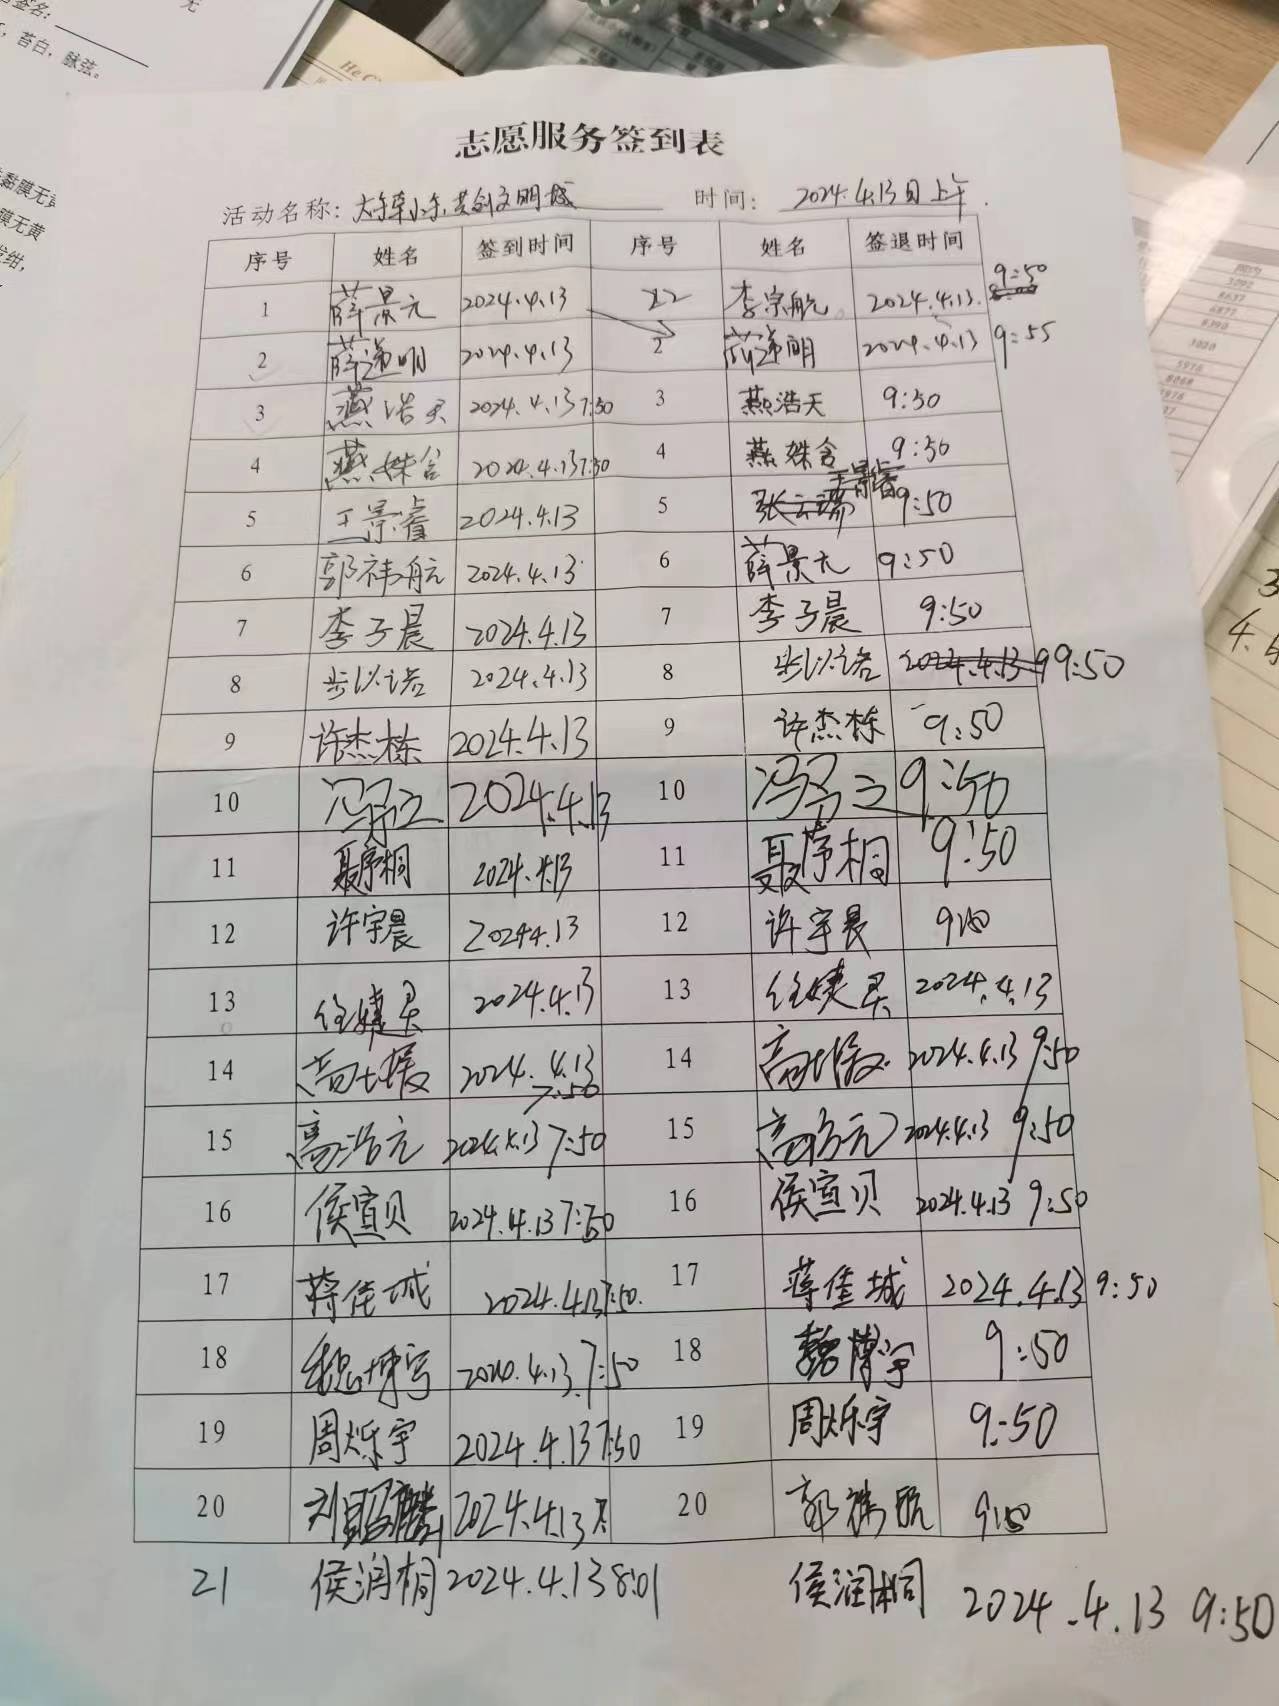 苔白，脉弦。
志愿服务签到表
活动名称：大手牵小手共创文明城 时间：2024.4.13日上午.
序号 姓名 签到时间 序号 姓名 签退时间
1 薛景元 2024.4.13 22 李宗航 2024.4.13. 9:50
2 薛滢明 2024.4.13 2 薛滢明 2024.4.13 9:55
3 燕浩天 2024.4.13 7:50 3 燕浩天 9:50
4 燕姝含 2024.4.13 7:50 4 燕姝含 9:50
5 王景睿 2024.4.13 5 张云瑞 王景睿 9:50
6 郭祎航 2024.4.13 6 薛景元 9:50
7 李子晨 2024.4.13 7 李子晨 9:50
8 步以诺 2024.4.13 8 步以诺 2024.4.13 9 9:50
9 许杰栋 2024.4.13 9 许杰栋 9:50
10 2024.4.13 10 9:50
11 聂序桐 2024.4.13 11 聂序桐 9:50
12 许宇晨 2024.4.13 12 许宇晨 9:50
13 2024.4.13 13 2024.4.13
14 2024.4.13 7:50 14 2024.4.13 9:50
15 高浩元 2024.4.13 7:50 15 高浩元 2024.4.13 9:50
16 侯宣贝 2024.4.13 7:50 16 侯宣贝 2024.4.13 9:50
17 蒋佳城 2024.4.13 7:50. 17 蒋佳城 2024.4.13 9:50
18 魏博宇 2024.4.13 7:50 18 魏博宇 9:50
19 周烁宇 2024.4.13 7:50 19 周烁宇 9:50
20 刘昭麟 2024.4.13 20 郭祎航 9:50
21 侯润桐 2024.4.13 8:01 侯润桐 2024.4.13 9:50